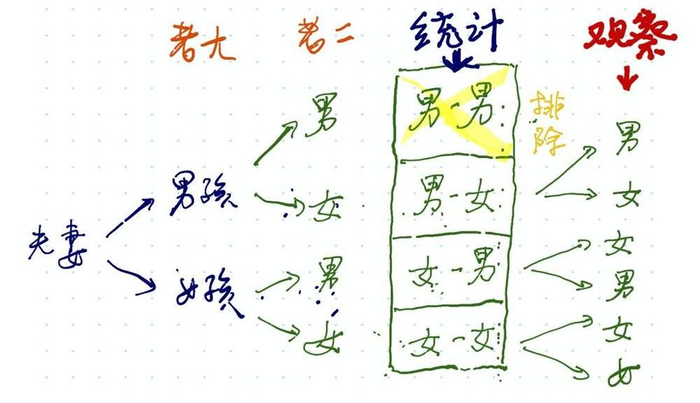 老大 老二 统计 观察
男 男-男 排除 男
男孩 女 男-女 女
夫妻 女
女孩 男 女-男 男
女 女-女 女
女